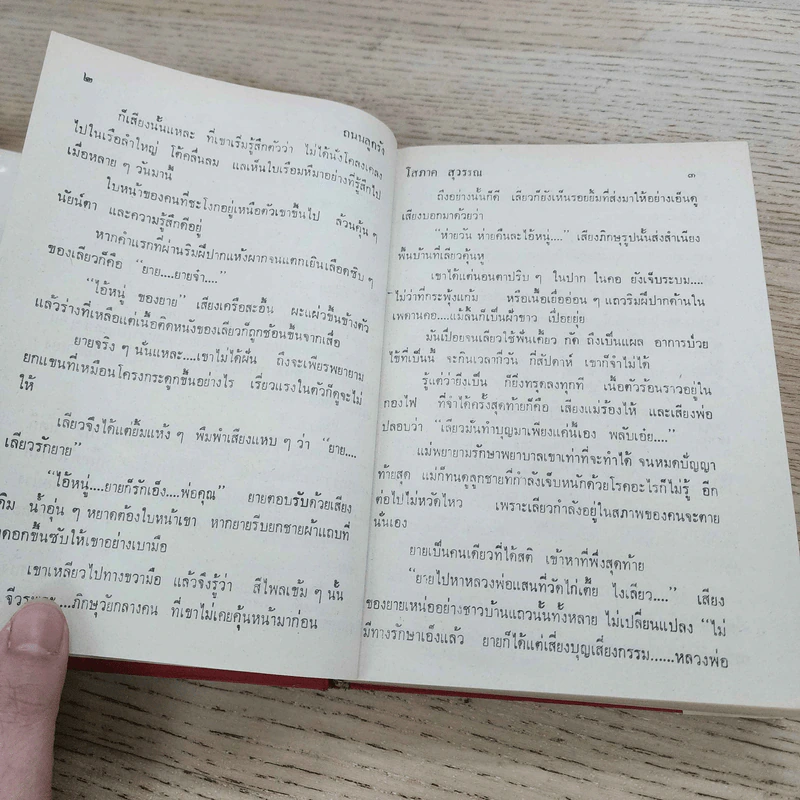 ๒
ถนนลูกรัง
ก็เสียงนั้นแหละ ที่เขาเริ่มรู้สึกตัวว่า ไม่ได้นั่งโคลงเคลง
ไปในเรือลำใหญ่ โต้คลื่นลม แลเห็นใบเรือมหึมาอย่างที่รู้สึกไป
เมื่อหลาย ๆ วันมานี้
ใบหน้าของคนที่ชะโงกอยู่เหนือตัวเขาขึ้นไป ล้วนคุ้น ๆ
นัยน์ตา และความรู้สึกดีอยู่
หากคำแรกที่ผ่านริมฝีปากแห้งผากจนแตกเยินเลือดซิบ ๆ
ของเลียวก็คือ "ยาย....ยายจ๋า...."
"ไอ้หนู ของยาย" เสียงเครือสะอื้น ผะแผ่วขึ้นข้างตัว
แล้วร่างที่เหลือแต่เนื้อติดหนังของเลียวก็ถูกช้อนขึ้นจากเสื่อ
ยายจริง ๆ นั่นแหละ....เขาไม่ได้ฝัน ถึงจะเพียรพยายาม
ยกแขนที่เหมือนโครงกระดูกขึ้นอย่างไร เรี่ยวแรงในตัวก็ดูจะไม่
ให้
เลียวจึงได้แต่ยิ้มแห้ง ๆ พึมพำเสียงแหบ ๆ ว่า "ยาย....
เลียวรักยาย"
"ไอ้หนู....ยายก็รักเอ็ง....พ่อคุณ" ยายตอบรับด้วยเสียง
เดิม น้ำอุ่น ๆ หยาดต้องใบหน้าเขา หากยายรีบยกชายผ้าแถบที่
ดอกขึ้นซับให้เขาอย่างเบามือ
เขาเหลียวไปทางขวามือ แล้วจึงรู้ว่า สีไพลเข้ม ๆ นั้น
....ภิกษุวัยกลางคน ที่เขาไม่เคยคุ้นหน้ามาก่อน
โสภาค สุวรรณ
๓
ถึงอย่างนั้นก็ดี เลียวก็ยังเห็นรอยยิ้มที่ส่งมาให้อย่างเอ็นดู
เสียงบอกมาด้วยว่า
"ห่ายวัน ห่ายคืนละไอ้หนู...." เสียงภิกษุรูปนั้นส่งสำเนียง
พื้นบ้านที่เลียวคุ้นหู
เขาได้แต่นอนตาปริบ ๆ ในปาก ในคอ ยังเจ็บระบม....
ไม่ว่าที่กระพุ้งแก้ม หรือเนื้อเยื่ออ่อน ๆ แถวริมฝีปากด้านใน
เพดานคอ....แม้ลิ้นก็เป็นฝ้าขาว เปื่อยยุ่ย
มันเปื่อยจนเลียวใช้ฟันเคี้ยว กัด ถึงเป็นแผล อาการป่วย
ไข้ที่เป็นนี้ จะกินเวลากี่วัน กี่สัปดาห์ เขาก็จำไม่ได้
รู้แต่ว่ายิ่งเป็น ก็ยิ่งทรุดลงทุกที เนื้อตัวร้อนราวอยู่ใน
กองไฟ ที่จำได้ครั้งสุดท้ายก็คือ เสียงแม่ร้องไห้ และเสียงพ่อ
ปลอบว่า "เลียวมันทำบุญมาเพียงแค่นี้เอง พลับเอ๋ย...."
แม่พยายามรักษาพยาบาลเขาเท่าที่จะทำได้ จนหมดปัญญา
ท้ายสุด แม่ก็ทนดูลูกชายที่กำลังเจ็บหนักด้วยโรคอะไรก็ไม่รู้ อีก
ต่อไปไม่หวัดไหว เพราะเลียวกำลังอยู่ในสภาพของคนจะตาย
นั่นเอง
ยายเป็นคนเดียวที่ได้สติ เข้าหาที่พึ่งสุดท้าย
"ยายไปหาหลวงพ่อแสนที่วัดไก่เตี้ย ไงเลียว...." เสียง
ของยายเหน่ออย่างชาวบ้านแถวนั้นทั้งหลาย ไม่เปลี่ยนแปลง "ไม่
มีทางรักษาเอ็งแล้ว ยายก็ได้แต่เสี่ยงบุญเสี่ยงกรรม......หลวงพ่อ